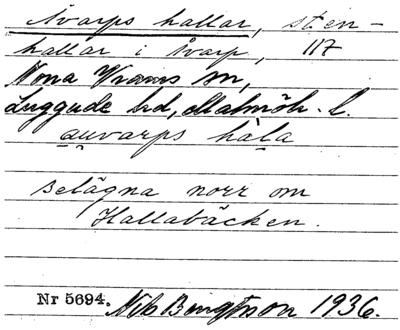 Åvarps hallar, sten-
hallar i Åvarp, 117
Norra Vrams sn,
Luggude hd, Malmöh. l.
auvarps hala
Belägna norr om
Hallabäcken.
Nr 5694. Nils Bengtsson 1936.